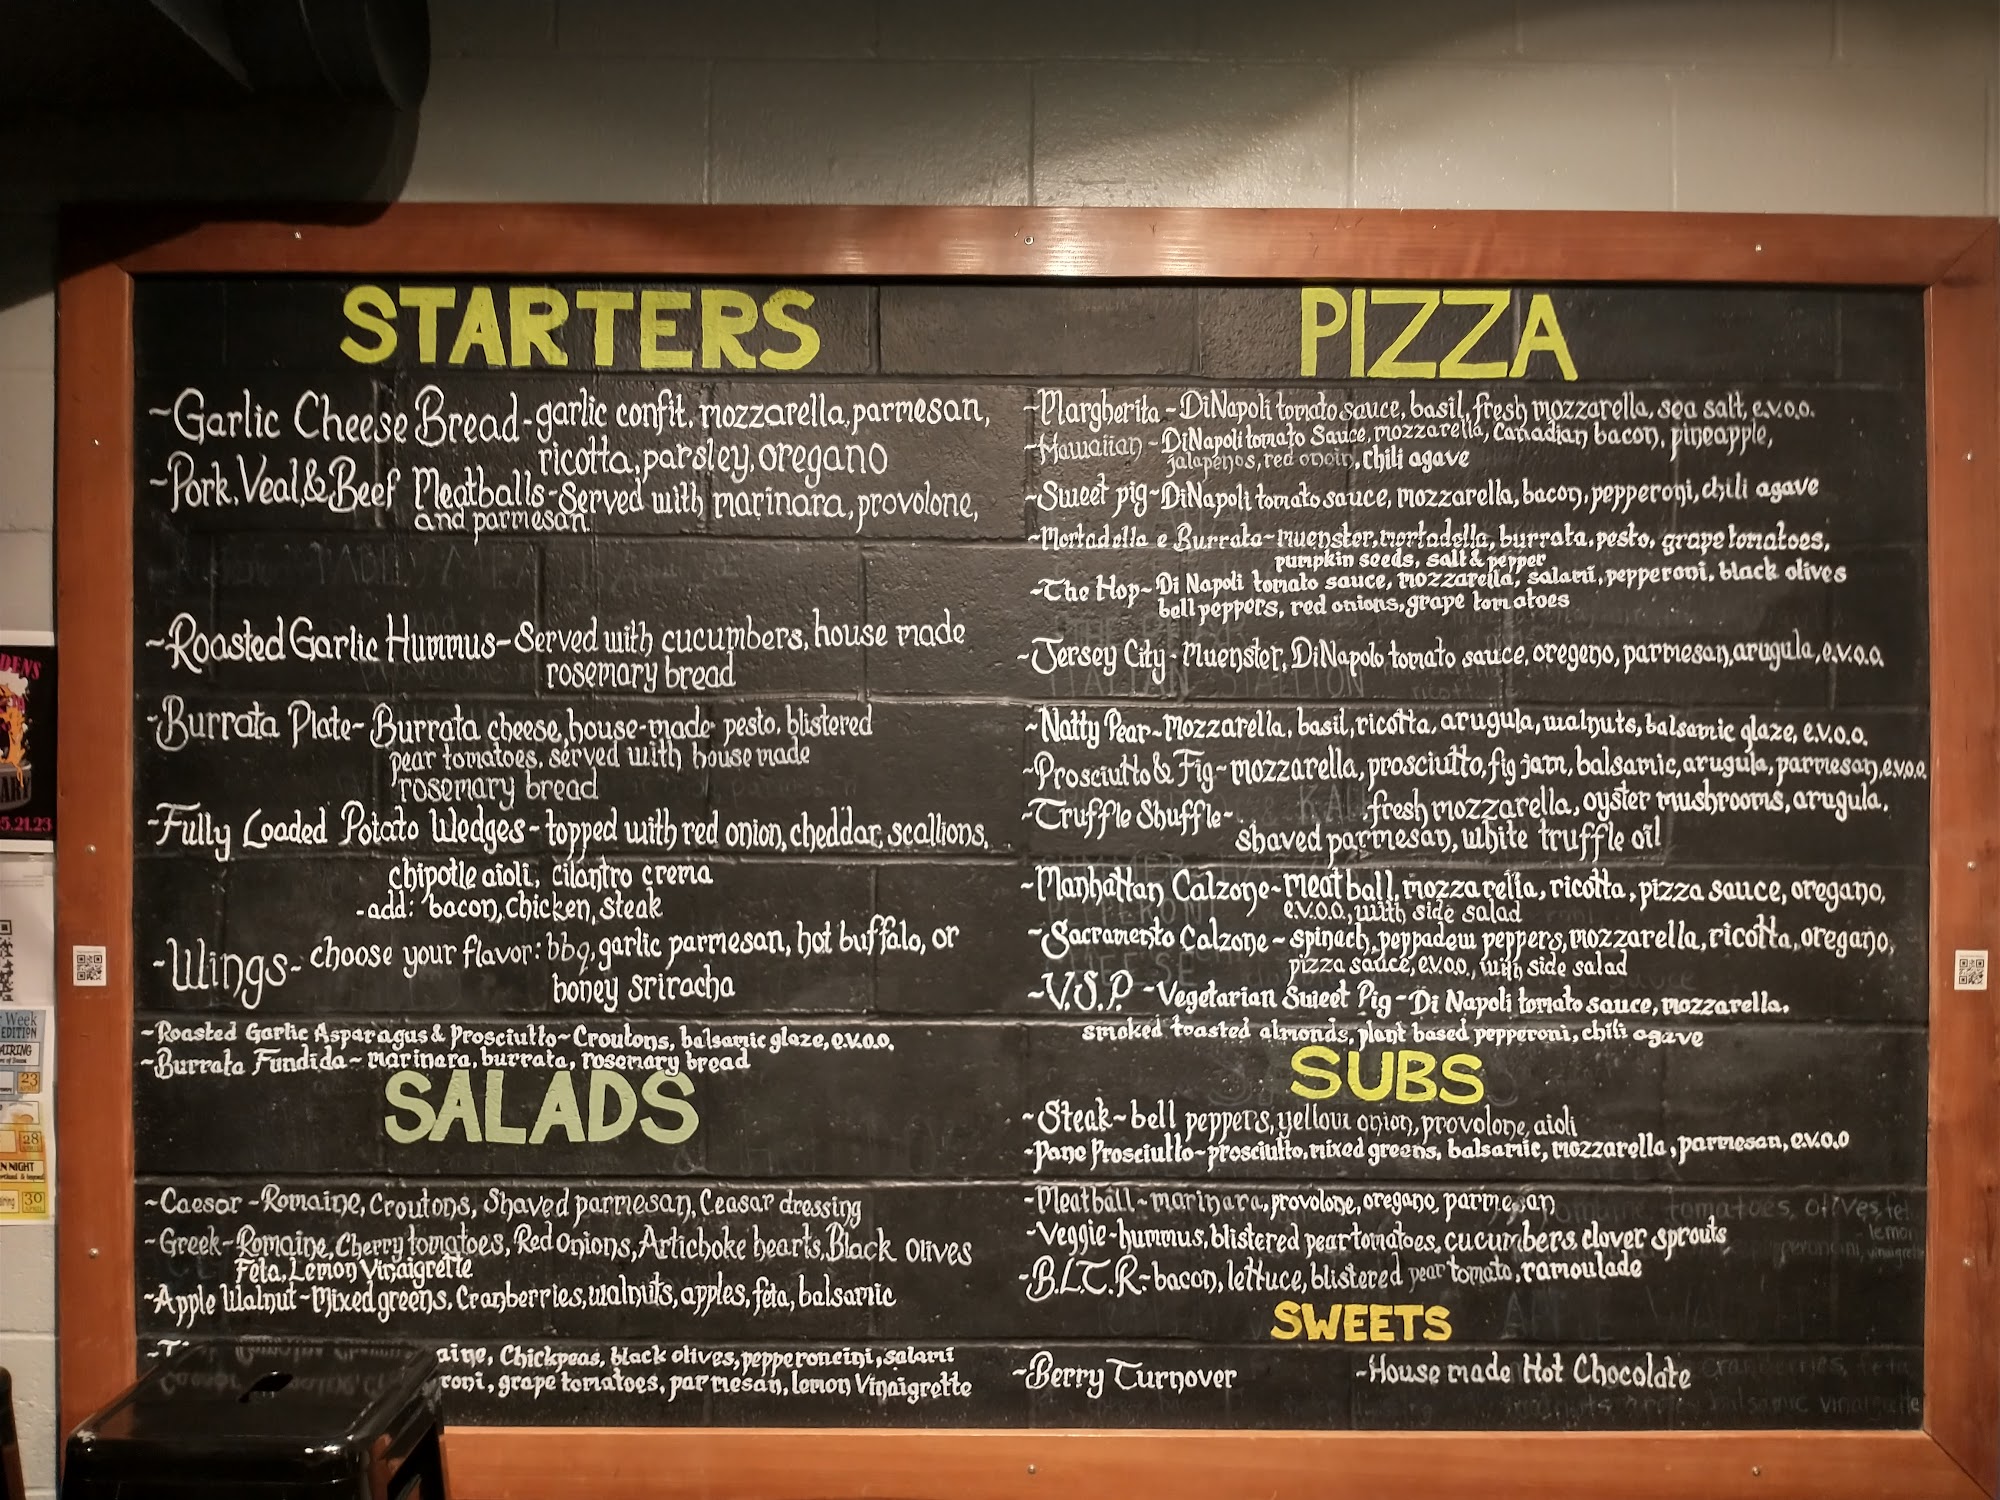 STARTERS
~Garlic Cheese Bread-garlic confit, mozzarella, parmesan,
ricotta, parsley, oregano
~Pork, Veal, & Beef Meatballs-Served with marinara, provolone,
and parmesan
~Roasted Garlic Hummus-Served with cucumbers, house made
rosemary bread
~Burrata Plate-Burrata cheese, house-made pesto, blistered
pear tomatoes, served with house made
rosemary bread
~Fully Loaded Potato Wedges-topped with red onion, cheddar, scallions,
chipotle aioli, cilantro crema
-add: bacon, chicken, steak
~Wings- choose your flavor: bbq, garlic parmesan, hot buffalo, or
honey sriracha
~Roasted Garlic Asparagus & Prosciutto~Croutons, balsamic glaze, e.v.o.o.
~Burrata Fundida~marinara, burrata, rosemary bread
SALADS
~Caesar -Romaine, Croutons, Shaved parmesan, Ceasar dressing
~Greek-Romaine, Cherry tomatoes, Red onions, Artichoke hearts, Black olives
Feta, Lemon Vinaigrette
~Apple Walnut~Mixed greens, Cranberries, walnuts, apples, feta, balsamic
aine, Chickpeas, black olives, pepperoncini, salami
roni, grape tomatoes, parmesan, lemon Vinaigrette
PIZZA
~Margherita-DiNapoli tomato sauce, basil, fresh mozzarella, sea salt, e.v.o.o.
~Hawaiian-DiNapoli tomato Sauce, mozzarella, Canadian bacon, pineapple,
jalapeños, red onoin, chili agave
~Sweet pig~DiNapoli tomato sauce, mozzarella, bacon, pepperoni, chili agave
~Mortadella e Burrata~muenster, mortadella, burrata, pesto, grape tomatoes,
pumpkin seeds, salt & pepper
~The Hop~Di Napoli tomato sauce, mozzarella, salami, pepperoni, black olives
bell peppers, red onions, grape tomatoes
~Jersey City-Muenster, DiNapolo tomato sauce, oregeno, parmesan, arugula, e.v.o.o.
~Natty Pear~mozzarella, basil, ricotta, arugula, walnuts, balsamic glaze, e.v.o.o.
~Prosciutto & Fig~mozzarella, prosciutto, fig jam, balsamic, arugula, parmesan, e.v.o.o.
~Truffle Shuffle- fresh mozzarella, oyster mushrooms, arugula,
shaved parmesan, white truffle oil
~Manhattan Calzone~meat ball, mozzarella, ricotta, pizza sauce, oregano,
e.v.o.o., with side salad
~Sacramento Calzone~spinach, peppadew peppers, mozzarella, ricotta, oregano,
pizza sauce, e.v.o.o., with side salad
~V.S.P -Vegetarian Sweet Pig-Di Napoli tomato sauce, mozzarella,
smoked toasted almonds, plant based pepperoni, chili agave
SUBS
~Steak~bell peppers, yellow onion, provolone, aioli
~Pane Prosciutto~prosciutto, mixed greens, balsamic, mozzarella, parmesan, e.v.o.o
~Meatball~marinara, provolone, oregano, parmesan
~Veggie-hummus, blistered pear tomatoes, cucumbers, clover sprouts
~B.L.T.R.-bacon, lettuce, blistered pear tomato, ramoulade
SWEETS
~Berry Turnover
~House made Hot Chocolate
5.21.23
Week
EDITION
23
28
30